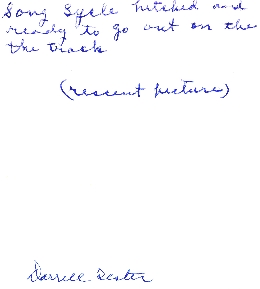 Song Sycle hitched and
ready to go out on the
the track
(rescent picture)
Darrell Dexter